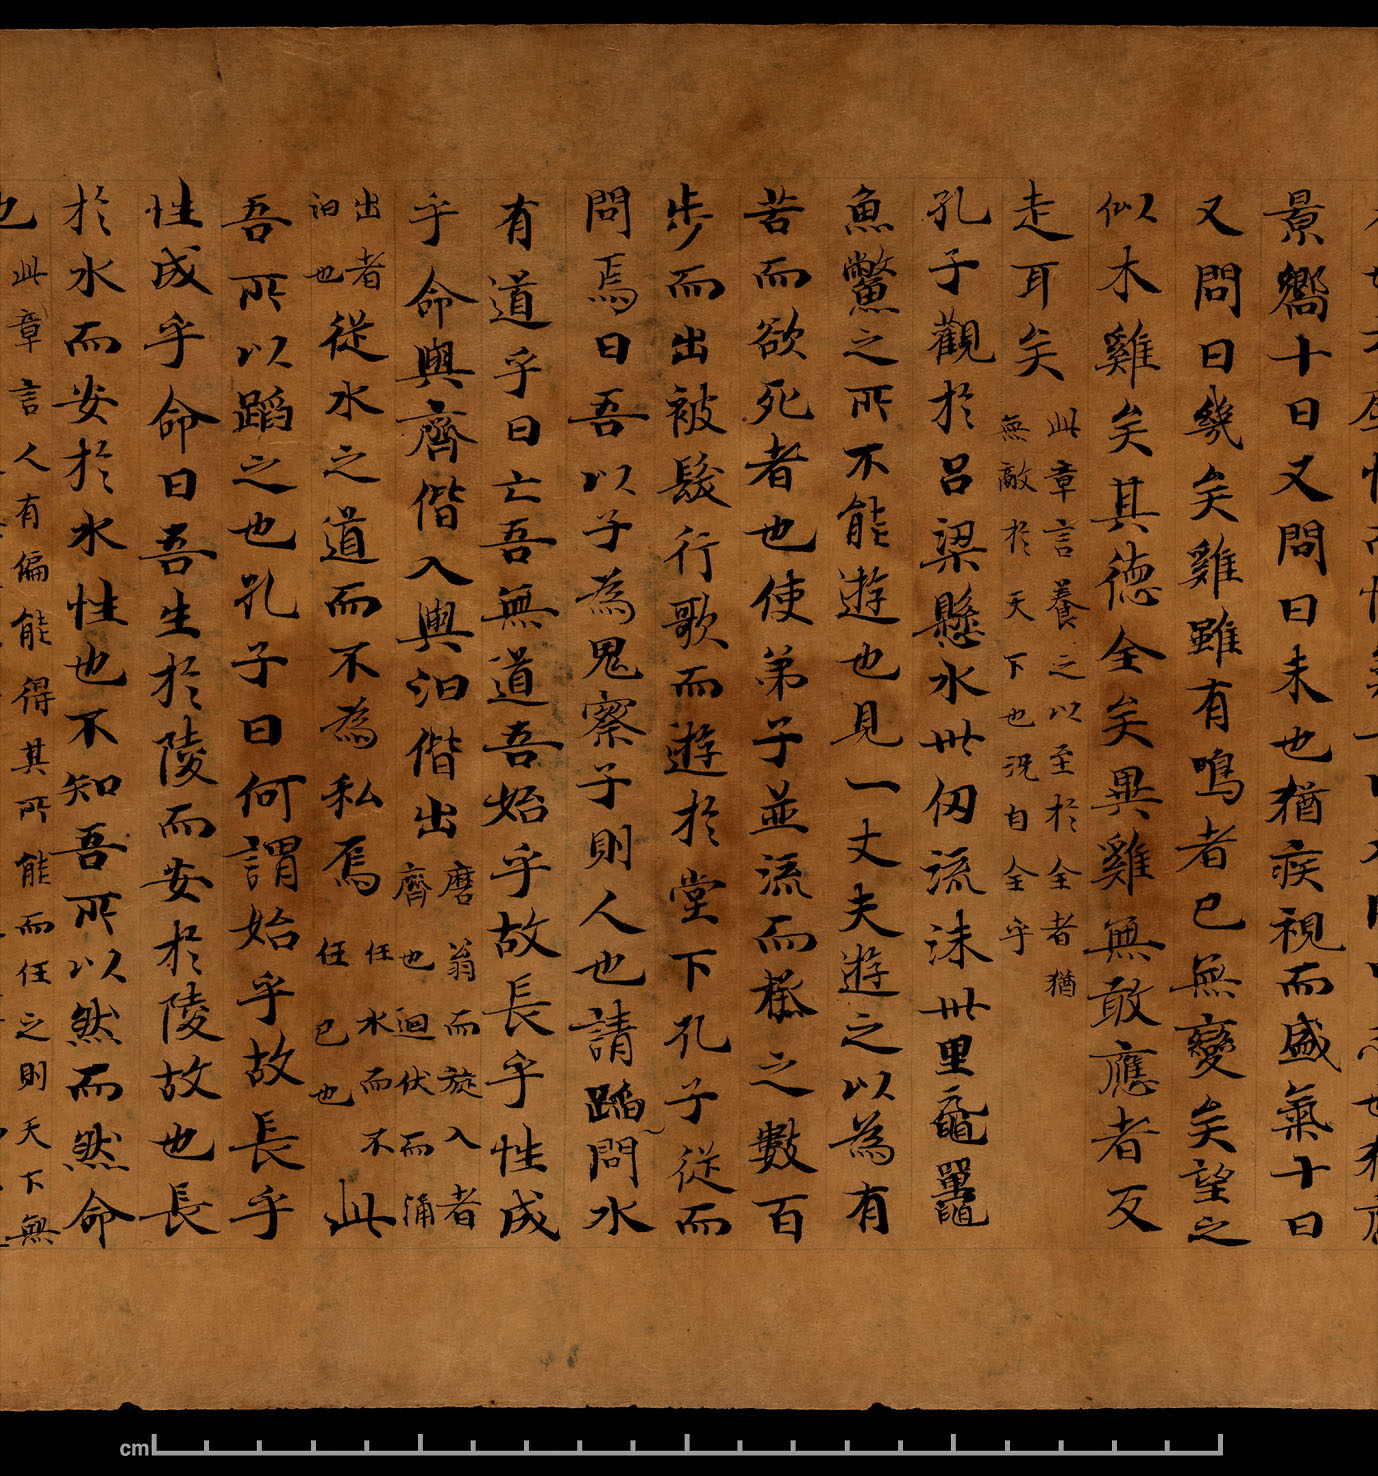 景嚮十日又問曰未也猶疾視而盛氣十日
又問曰幾矣雞雖有鳴者已無變矣望之
似木雞矣其德全矣異雞無敢應者反
走耳矣此章言養之以至於全者猶無敵於天下也況自全乎
孔子觀於呂梁懸水卅仞流沫卅里黿鼉
魚鱉之所不能遊也見一丈夫遊之以為有
苦而欲死者也使弟子並流而拯之數百
步而出被髮行歌而遊於堂下孔子從而
問焉曰吾以子為鬼察子則人也請蹈問水
有道乎曰亡吾無道吾始乎故長乎性成
乎命與齊偕入與汩偕出磨翁而旋入者齊也迴伏而涌
出者汩也從水之道而不為私焉任水而不任己也此
吾所以蹈之也孔子曰何謂始乎故長乎
性成乎命曰吾生於陵而安於陵故也長
於水而安於水性也不知吾所以然而然命
也此章言人有偏能得其所能而任之則天下無